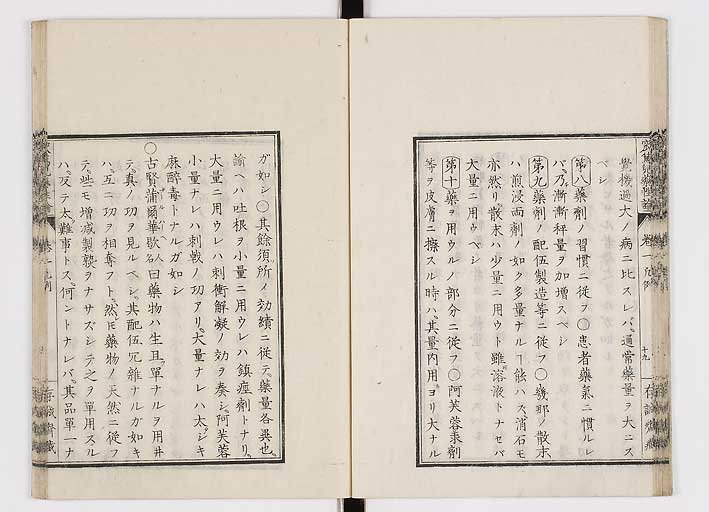 覺機過大ノ病ニ比スレバ通常藥量ヲ大ニス
ベシ
第八藥劑ノ習慣ニ從フ○患者藥氣ニ慣ルレ
バ乃漸漸秤量ヲ加增スベシ
第九藥劑ノ配伍製造等ニ從フ○幾那ノ散末
ハ煎浸兩劑ノ如ク多量ナルヿ能ハズ消石モ
亦然リ散末ハ少量ニ用ウト雖溶液トナセバ
大量ニ用ウベシ
第十藥ヲ用ウルノ部分ニ從フ○阿芙蓉汞劑
等ヲ皮膚ニ擦スル時ハ其量內用ヨリ大ナル
卷一
十九
ガ如シ○其餘須所ノ効績ニ從テ藥量各異也
諭ヘハ吐根ヲ小量ニ用ウレハ鎮痙劑トナリ
大量ニ用ウレハ刺衝解凝ノ効ヲ奏シ阿芙蓉
小量ナレハ刺戟ノ功アリ大量ナレハ太シキ
麻醉毒トナルガ如シ
○古賢蒲爾華歇人名曰藥物ハ生且單ナルヲ用井
テ真ノ功ヲ見ルベシ其配伍冗雜ナルガ如キ
ハ互ニ功ヲ相奪フト然ㇾ𪜈藥物ノ天然ニ從フ
テ些モ增減製熟ヲナサズシテ之ヲ單用スル
ハ反テ太難事トス何ントナレバ其品單一ナ
卷一